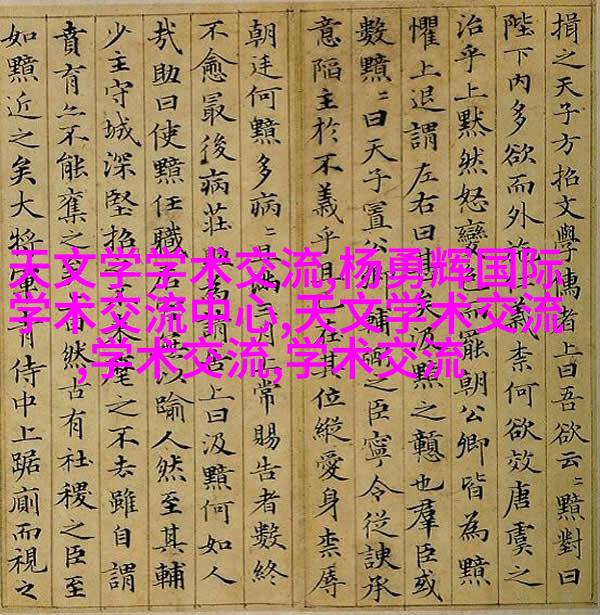 揖之天子方招文學儒者上曰吾欲云〻黯對曰
陛下內多欲而外施仁義柰何欲效唐虞之
治乎上默然怒變色而罷朝公卿皆為黯
懼上退謂左右曰甚矣汲黯之戇也羣臣或
數黯〻曰天子置公卿輔弼之臣寧令從諛承
意陷主於不義乎且在其位縱愛身柰辱
朝廷何黯多病〻且滿三月上常賜告者數終
不愈最後病莊為請告上曰汲黯何如人
哉助曰使黯任職居官無以踰人然至其輔
少主守城深堅招之不來麾之不去雖自謂
賁育亦不能奪之矣上曰然古有社稷之臣至
如黯近之矣大將軍青侍中上踞廁而視之
天文学学术交流,杨勇辉国际
学术交流中心,天文学术交流
,学术交流,学术交流